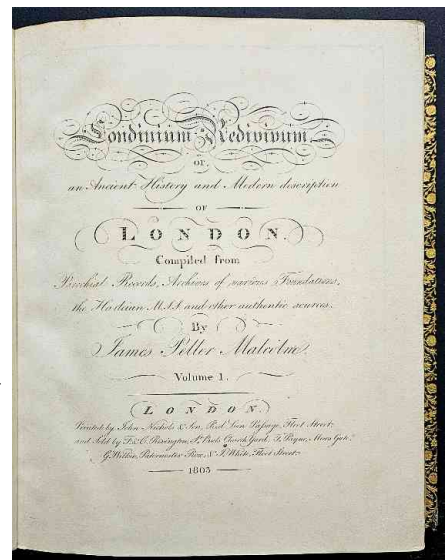 Londinium Redivivum
or,
an Ancient History and Modern description
OF
LONDON.
Compiled from
Parochial Records, Archives of various Foundations,
the Harleian MSS. and other authentic sources.
By
James Peller Malcolm.
Volume 1.
LONDON.
Printed by John Nichols & Son, Red Lion Passage, Fleet Street:
and Sold by F. & C. Rivington, St. Pauls Church Yard, T. Payne, Mews Gate,
G. Wilkie, Paternoster Row, & J. White, Fleet Street.
1803